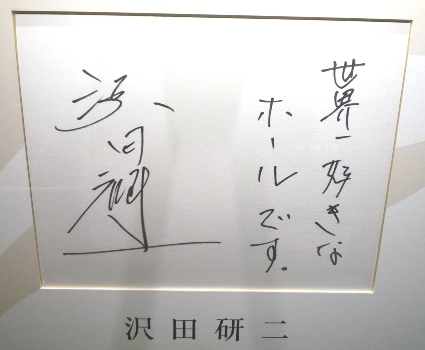 世界一好きな
ホールです。
沢田研二
沢田研二